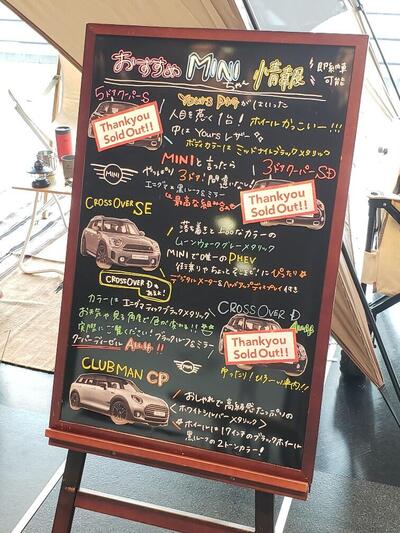 おすすめ MINI Car 情報
即納車
可能
5ドアクーパーS
Thankyou
Sold Out!!
Yours Pkgがはいった
人目を惹く1台! ホイールかっこいー!!!
中はYoursレザー
ボディカラーはミッドナイトブラックメタリック
MINI
MINIと言ったら
やっぱり3ドア!間違いなし!
エニグマ×黒ルーフ&ミラー
最高な組合せ
3ドアクーパーSD
Thankyou
Sold Out!!
CROSSOVER SE
落ち着きと上品なカラーの
ムーンウォークグレーメタリック
MINIで唯一のPHEV
街乗りやちょっとそこまで!にぴったり
デジタルメーター&ヘッドアップディスプレイ付き
CROSSOVER Dも
あるよ!
カラーはエニグマティックブラックメタリック
お天気や見る角度で色が変わる!!
実際にご覧ください!ブラックルーフ&ミラー
クーパーディーゼル ALL4!!
CROSSOVER D ALL4
Thankyou
Sold Out!!
ゆったり!ひろーい車内!!
CLUBMAN CP
MINI
おしゃれで高級感たっぷりの
ホワイトシルバーメタリック
ホイールは17インチのブラックホイール
黒ルーフの2トーンカラー!